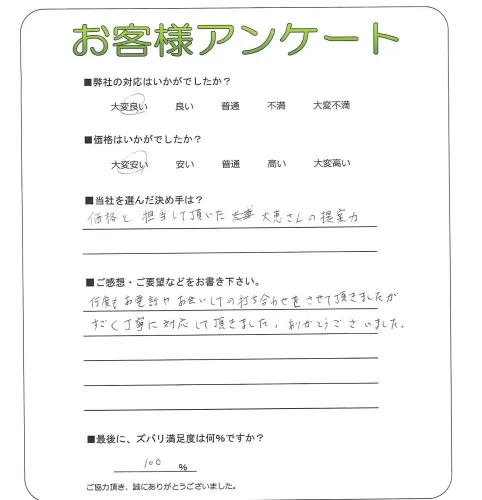 お客様アンケート
■弊社の対応はいかがでしたか？
大変良い 良い 普通 不満 大変不満
■価格はいかがでしたか？
大変安い 安い 普通 高い 大変高い
■当社を選んだ決め手は？
価格と、担当して頂いた 大恵さんの提案力
■ご感想・ご要望などをお書き下さい。
何度もお電話やお会いしての打ち合わせをさせて頂きましたが
すごく丁寧に対応して頂きました。ありがとうございました。
■最後に、ズバリ満足度は何％ですか？
100 ％
ご協力頂き、誠にありがとうございました。